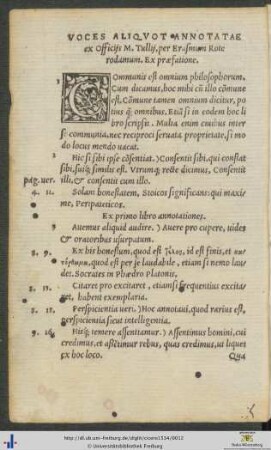 VOCES ALIQVOT ANNOTATAE
ex Officijs M. Tullij, per Erasmum Rote
rodamum. Ex præfatione.
Communia est omnium philosophorum.
Cum dicamus, hoc mihi cū illo cōmune
est, Cōmune tamen omnium dicitur, po
tius q̃ omnibus. Etiā si in eodem hoc li
bro scripsit. Multa enim ciuibus inter
se communia, nec reciproci seruata proprietate, si mo
do locus mendo uacat.
Hic si sibi ipse cōsentiat. ) Consentit sibi, qui constat
sibi, suiq́; similis est. Vtrumq; recte dicimus, Consentit
pag. uer. illi, & consentit cum illo.
4. 11. Solam honestatem, Stoicos significans: qui maxi
me, Peripateticos.
Ex primo libro annotationes.
Auemus aliquid audire. ) Auere pro cupere, uides
& oratoribus usurpatum.
5. 9. Ex his bonestum, quod est
quod est per se laudabile, etiam si nemo lau
det. Socrates in Phædro Platonis.
5. 11. Citaret pro excitaret, etiamsi frequentius excita
ret, habent exemplaria.
5. 17. Perspicientia ueri. ) Hoc annotaui, quod rarius est,
perspicientia sicut intelligentia.
9. 16. Hisq́; temere assentiamur. ) Assentimus homini, cui
credimus, et assētimur rebus, quas credimus, ut liquet
ex hoc loco.
Qua
http://dl.ub.uni-freiburg.de/diglit/cicero1534/0012
Universitätsbibliothek Freiburg